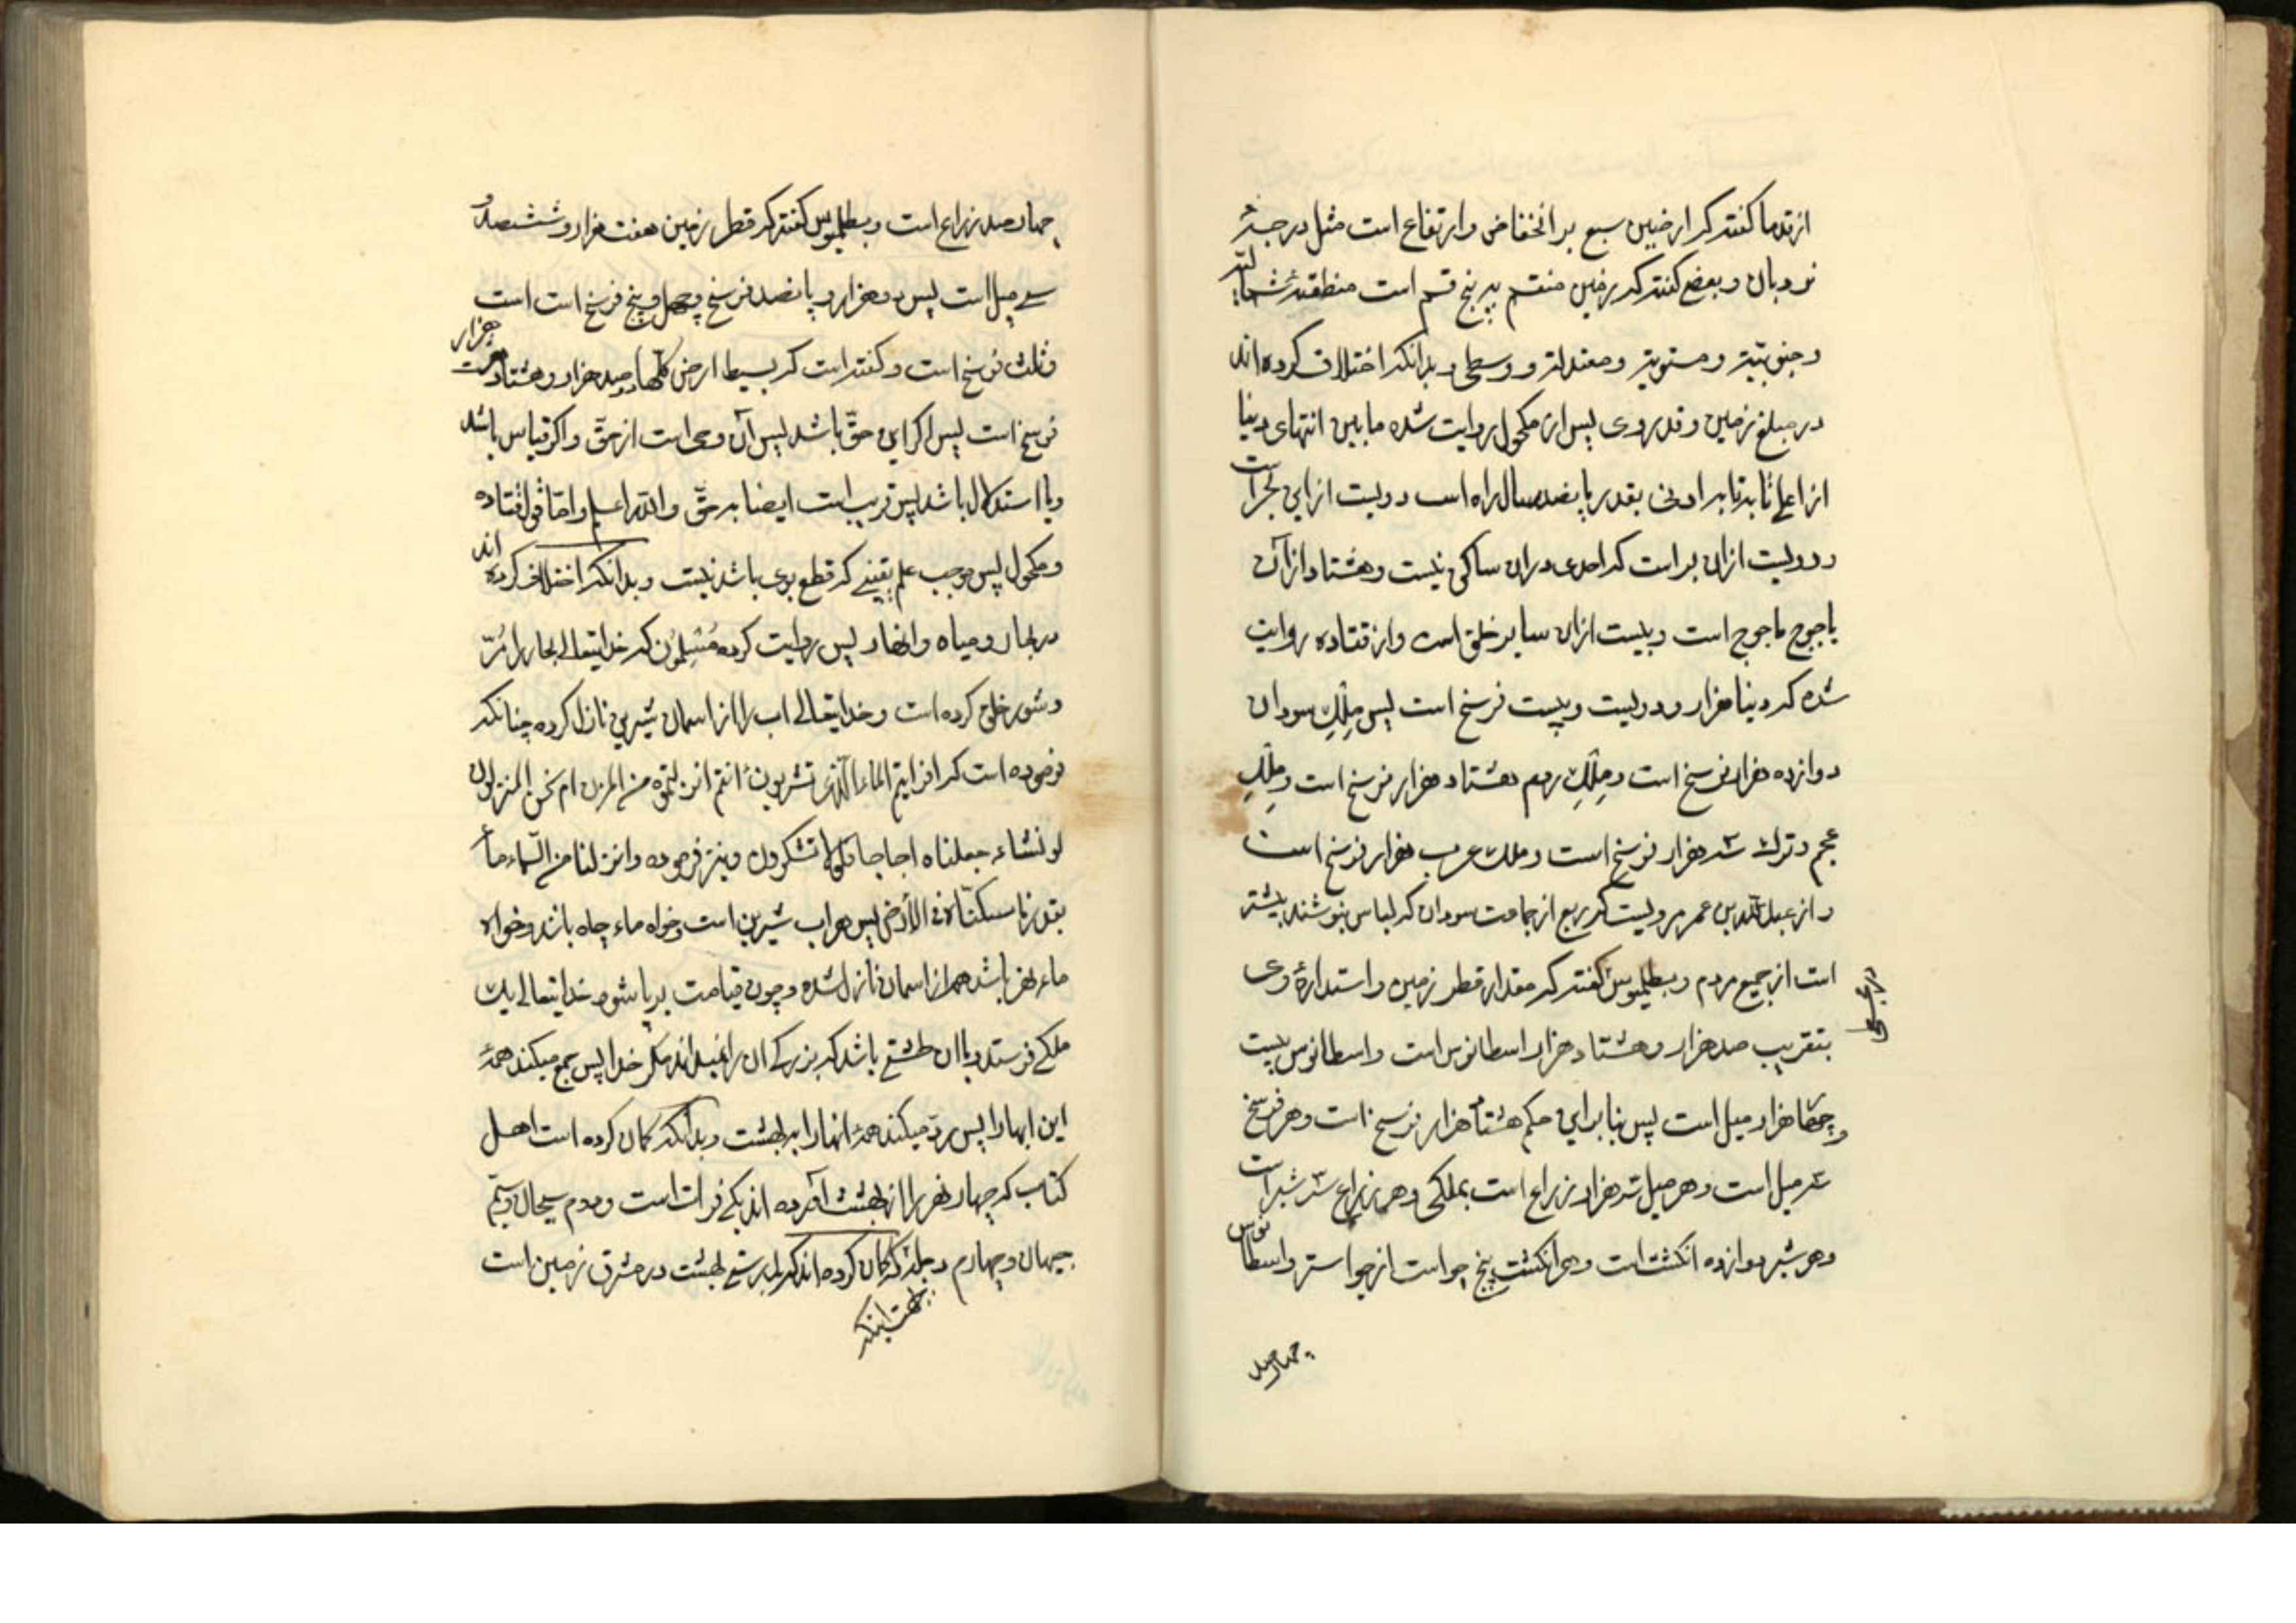 از قدما گفته که ارضین سبع بر انخفاض و ارتفاع است مثل درجهٔ
نردبان و بعضی گفته که زمین منقسم به پنج قسم است منطقهٔ شمالیه
و جنوبیّه و مستویه و معتدله و وسطی و بدانکه اختلاف کرده اند
در مبلغ زمین و قدر وی پس از مکحول روایت شده مابین انتهای دنیا
از اعلی تا به ادنی بقدر پانصد سال راه است دویست از این بحر است
و دویست از ان بر است که احدی در ان ساکن نیست و هشتاد از آن
یاجوج ماجوج است و بیست از ان سایر خلق است و از قتاده روایت
شده که دینا هزار و دویست و بیست فرسخ است پس مِلْکِ سودان
دوازده هزار فرسخ است و مِلْکِ روم هشتاد هزار فرسخ است و مِلْکِ
عجم و ترک سه هزار فرسخ است و ملک عرب هزار فرسخ است
و از عبد اللّه بن عمر مرویست که ربع از جماعت سودان که لباس نپوشند بیشتر
است از جمیع مردم و بطلمیوس گفته که مقدار قطر زمین و استدارهٔ وی
بتقریب صد هزار و هشتاد هزار اسطانوس است و اسطانوس بیست
و چهار هزار میل است پس بنابراین حکم هشتاد هزار فرسخ است و هر فرسخ
سه میل است و هر میل سه هزار زراع است بملکی و هر زراع سه شبر است
و هر شبر دوازده انکشت است و هر انکشت پنج جو است از جو استر و اسطانوس
چهار صد
چهار صد زراع است و بطلمیوس گفته که قطر زمین هفت هزار و ششصد و
سی میل است پس دو هزار و پانصد فرسخ و چهل و پنج فرسخ است است
و ثلث فرسخ است و گفته است که بسیط ارض کلّها صد هزار و هشتاد هزار
فرسخ است پس اکر این حقّ باشد پس آن وحی است از حقّ و اکر قیاس باشد
و یا استدلال باشد پس قریب است ایضا به حقّ و اللّه اعلم و امّا قول قتاده
و مکحول پس موجب علم یقینی که قطع بوی باشد نیست و بدانکه اختلاف کرده اند
در بحار و میاه و انهار پس روایت کرده مُسْلِمُون که خدایتعالی بحار را مُرّ
و شور خلق کرده است و خدایتعالی اب را از اسمان شیرین نازل کرده چنانکه
فرموده است که افرایتم الماء الّذی تشربون ءانتم انزلتموه من المزن ام نحن المنزلون
لو نشاء جعلناه اجاجا فلولا تشکرون و نیز فرموده و انزلنا من السّماء ماء
بقدر فاسکنّاه فی الأرض پس هر اب شیرین است و خواه ماء چاه باشد و خواه
ماء نهر باشد همه از اسمان نازل شده و چون قیامت برپا شود خدایتعالی یک
ملکی فرستد و با ان طشتی باشد که بزرکی ان را نمیداند مکر خدا پس جمع میکند همهٔ
این ابها را پس ردّ میکند همهٔ انها را به بهشت و بدانکه کمان کرده است اهل
کتاب که چهار نهر را از بهشت آورده اند یکی فرات است و دوم سیحان و سیّم
جیهان و چهارم دجله که کمان کرده اند که بدرستی بهشت در مشرق زمین است